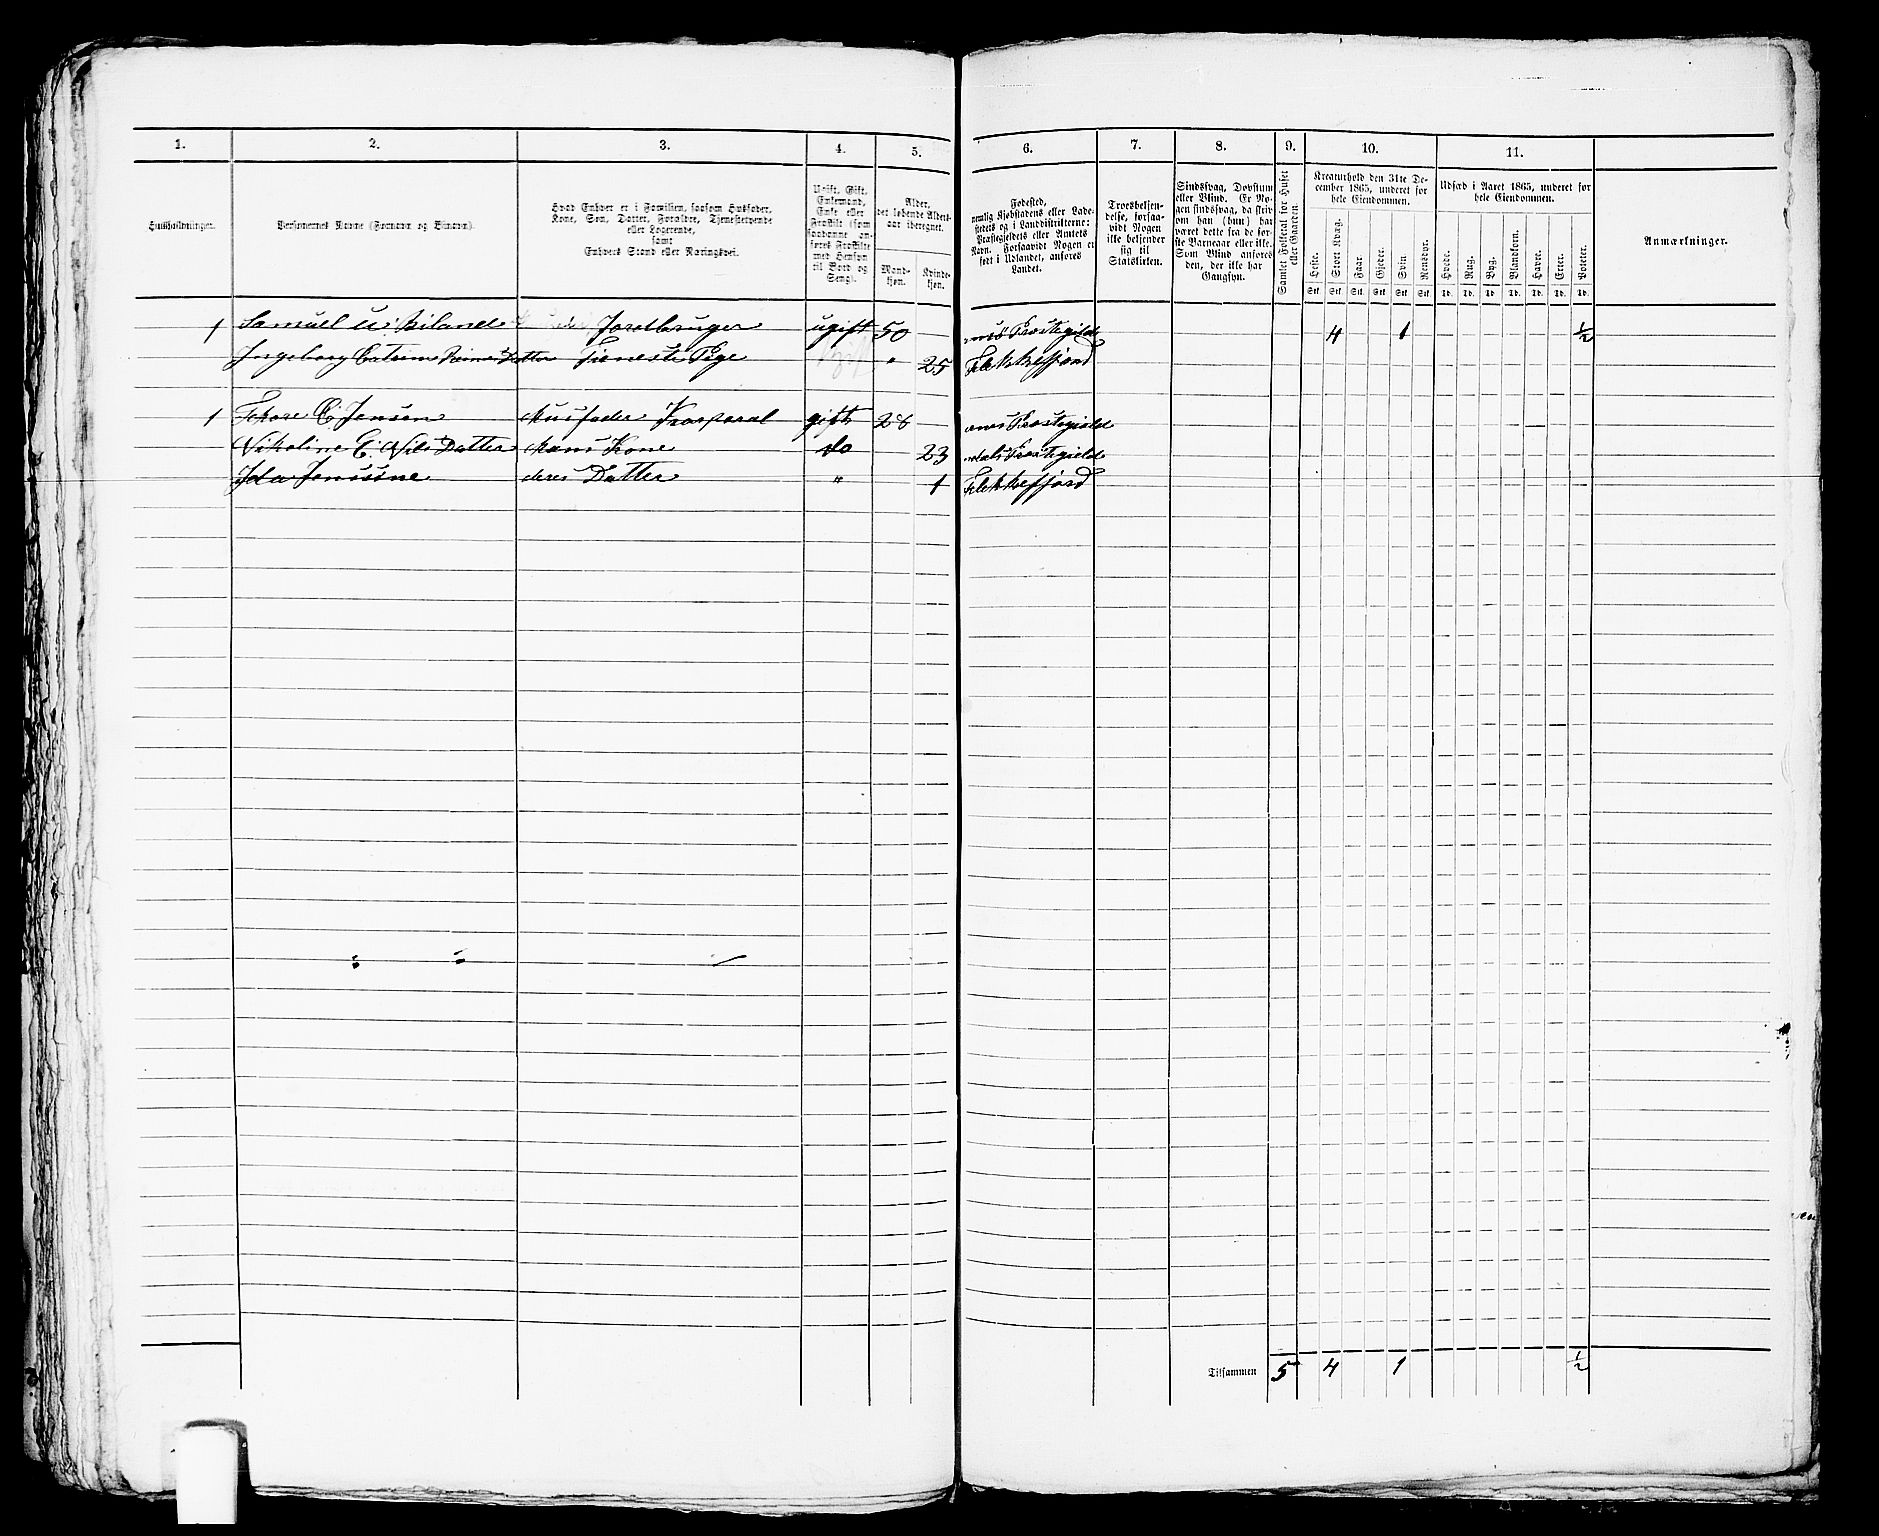 1. 2. 3. 4. 5. 6. 7. 8. 9. 10. 11.
Husholdninger.
Personernes Navne (Fornavn og Tilnavn).
Hvad Enhver er i Familien, saasom Husfader,
Kone, Søn, Datter, Forældre, Tjenestetyende
eller Logerende,
samt
Enhvers Stand eller Næringsvei.
Ugift, Gift,
Enkemand,
Enke eller
Fraskilt (som
saadanne an-
føres Fraskilte
med Hensyn
til Bord og
Seng).
Alder,
det løbende Alders-
aar iberegnet.
Mand-
kjøn.
Kvinde-
kjøn.
Fødested,
nemlig Kjøbstadens eller Lade-
stedets og i Landdistrikterne:
Præstegjeldets eller Amtets
Navn. Forsaavidt Nogen er
født i Udlandet, anføres
Landet.
Troesbekjen-
delse, forsaa-
vidt Nogen
ikke bekjender
sig til
Statskirken.
Sindssvag, Døvstum
eller Blind. Er No-
gen sindssvag, da skriv
om han (hun) har
været dette fra de før-
ste Barneaar eller ikke.
Som Blind anføres
den, der ikke har
Gangsyn.
Samlet Folketal for Huset
eller Gaarden.
Kreaturhold den 31te De-
cember 1865, underet for
hele Eiendommen.
Heste. Stort Kvæg. Faar. Gjeder. Svin. Rensdyr.
Stk. Stk. Stk. Stk. Stk. Stk.
Udsæd i Aaret 1865, underet for
hele Eiendommen.
Hvede. Rug. Byg. Blandkorn. Havre. Erter. Poteter.
Td. Td. Td. Td. Td. Td. Td.
Anmærkninger.
1 Samuel Jordbruger ugift 50 Præstegield 4 1 ½
Ingeborg Datter Tieneste Pige " 25 Flekkefjord
1 Thore C Jensen Husfader Korporal gift 28 Præstegield
Nikoline C. Nils Datter Hans Kone do 23 Præstegield
Ida deres Datter " 1 Flekkefjord
Tilsammen 5 4 1 ½